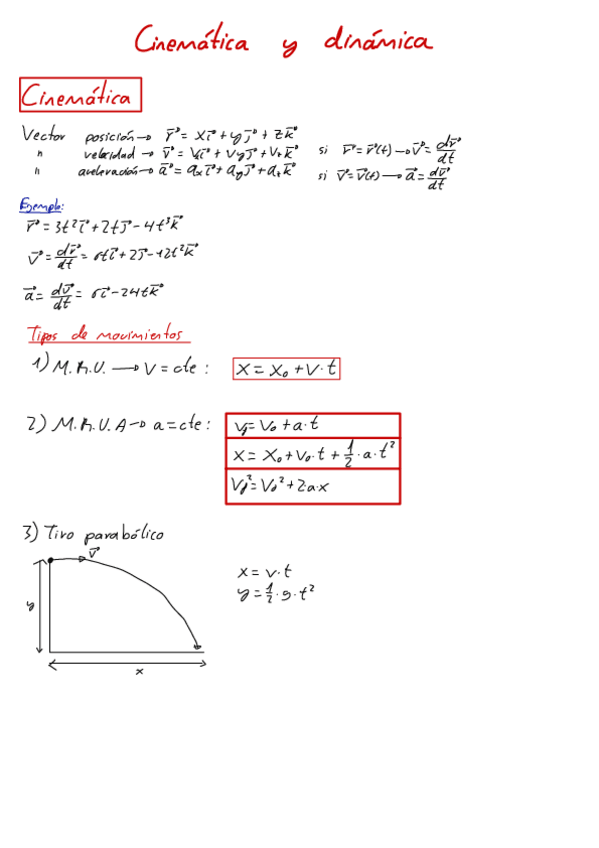 Cinemática y dinámica
Cinemática
Vector posición → r⃗ = xi⃗ + yj⃗ + zk⃗
" velocidad → v⃗ = Vxi⃗ + Vyj⃗ + Vzk⃗ si r⃗ = r⃗(t) → v⃗ = dr⃗/dt
" aceleración → a⃗ = axi⃗ + ayj⃗ + azk⃗ si v⃗ = v⃗(t) → a⃗ = dv⃗/dt
Ejemplo:
r⃗ = 3t²i⃗ + 2tj⃗ - 4t³k⃗
v⃗ = dr⃗/dt = 6ti⃗ + 2j⃗ - 12t²k⃗
a⃗ = dv⃗/dt = 6i⃗ - 24tk⃗
Tipos de movimientos
1) M.R.U. → v = cte : x = x₀ + v·t
2) M.R.U.A → a = cte : Vf = V₀ + a·t
x = x₀ + v₀·t + 1/2·a·t²
Vf² = V₀² + 2·a·x
3) Tiro parabólico
v⃗
x = v·t
y = 1/2·g·t²
y
x